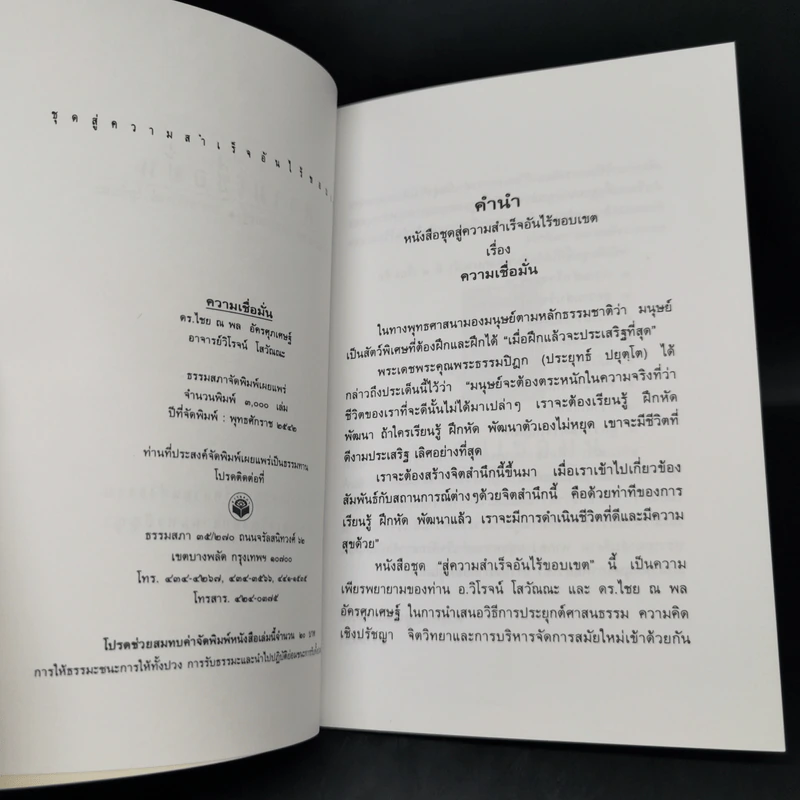 ชุดสู่ความสำเร็จอันไร้ขอบ
ความเชื่อมั่น
ดร.ไชย ณ พล อัครศุภเศรษฐ์
อาจารย์วิโรจน์ โสวัณณะ
ธรรมสภาจัดพิมพ์เผยแพร่
จำนวนพิมพ์ ๓,๐๐๐ เล่ม
ปีที่จัดพิมพ์ : พุทธศักราช ๒๕๔๒
ท่านที่ประสงค์จัดพิมพ์เผยแพร่เป็นธรรมทาน
โปรดติดต่อที่
ธรรมสภา ๓๕/๒๗๐ ถนนจรัลสนิทวงศ์ ๖๒
เขตบางพลัด กรุงเทพฯ ๑๐๗๐๐
โทร. ๔๓๔-๔๒๖๗, ๔๓๔-๓๕๖๖,
โทรสาร. ๔๒๔-๐๓๗๕
โปรดช่วยสมทบค่าจัดพิมพ์หนังสือเล่มนี้จำนวน ๒๐ บาท
การให้ธรรมะชนะการให้ทั้งปวง การรับธรรมะและนำไปปฏิบัติย่อมชนะการรับทั้ง
คำนำ
หนังสือชุดสู่ความสำเร็จอันไร้ขอบเขต
เรื่อง
ความเชื่อมั่น
ในทางพุทธศาสนามองมนุษย์ตามหลักธรรมชาติว่า มนุษย์
เป็นสัตว์พิเศษที่ต้องฝึกและฝึกได้ "เมื่อฝึกแล้วจะประเสริฐที่สุด"
พระเดชพระคุณพระธรรมปิฎก (ประยุทธ์ ปยุตฺโต) ได้
กล่าวถึงประเด็นนี้ไว้ว่า "มนุษย์จะต้องตระหนักในความจริงที่ว่า
ชีวิตของเราที่จะดีนั้นไม่ได้มาเปล่าๆ เราจะต้องเรียนรู้ ฝึกหัด
พัฒนา ถ้าใครเรียนรู้ ฝึกหัด พัฒนาตัวเองไม่หยุด เขาจะมีชีวิตที่
ดีงามประเสริฐ เลิศอย่างที่สุด
เราจะต้องสร้างจิตสำนึกนี้ขึ้นมา เมื่อเราเข้าไปเกี่ยวข้อง
สัมพันธ์กับสถานการณ์ต่างๆด้วยจิตสำนึกนี้ คือด้วยท่าทีของการ
เรียนรู้ ฝึกหัด พัฒนาแล้ว เราจะมีการดำเนินชีวิตที่ดีและมีความ
สุขด้วย"
หนังสือชุด "สู่ความสำเร็จอันไร้ขอบเขต" นี้ เป็นความ
เพียรพยายามของท่าน อ.วิโรจน์ โสวัณณะ และ ดร.ไชย ณ พล
อัครศุภเศรษฐ์ ในการนำเสนอวิธีการประยุกต์ศาสนธรรม ความคิด
เชิงปรัชญา จิตวิทยาและการบริหารจัดการสมัยใหม่เข้าด้วยกัน